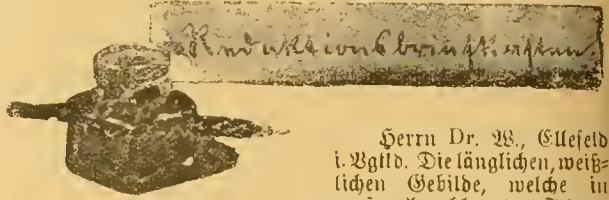 Redaktionsbriefkasten.
Herrn Dr. W., Ellefeld
i. Vgtld. Die länglichen, weiß=
lichen Gebilde, welche in